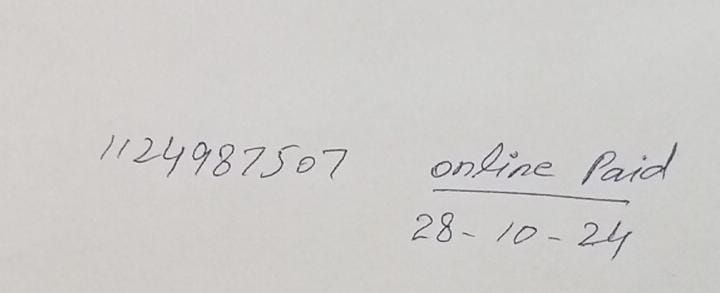 1124987507 online Paid
28-10-24